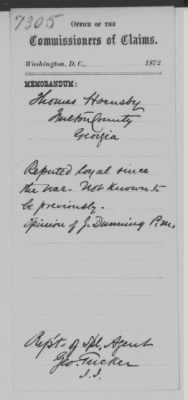 7305
OFFICE OF THE
Commissioners of Claims.
Washington, D. C., 1872
MEMORANDUM:
Thomas Hornsby
Milton County
Georgia
Reputed loyal since
the war. Not known to
be previously.
Opinion of J. Dunning P.M.
Rept. of Spl. Agent
Geo. Tucker